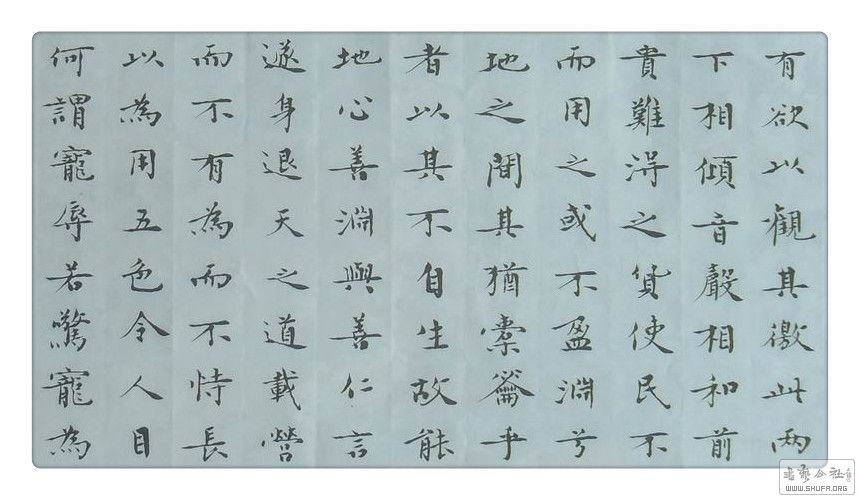 有欲以觀其徼此兩
下相傾音聲相和前
貴難得之貨使民不
而用之或不盈淵兮
地之間其猶橐籥乎
者以其不自生故能
地心善淵與善仁言
遂身退天之道載營
而不有為而不恃長
以為用五色令人目
何謂寵辱若驚寵為
WWW.SHUFA.ORG